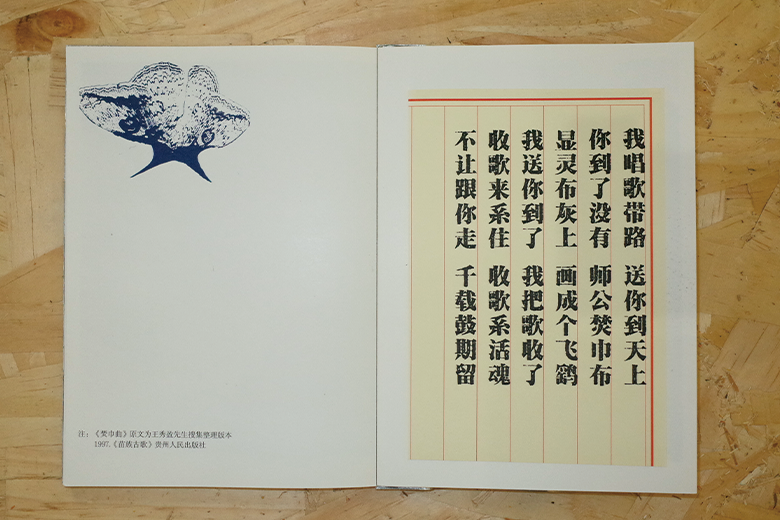 注：《焚巾曲》原文为王秀盈先生搜集整理版本
1997.《苗族古歌》贵州人民出版社
我唱歌带路 送你到天上
你到了没有 师公焚巾布
显灵布灰上 画成个飞
我送你到了 我把歌收了
收歌来系住 收歌系活魂
不让跟你走 千载鼓期留